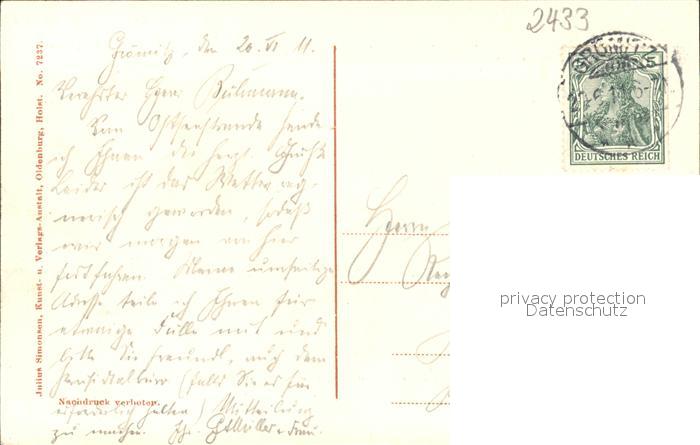 2433
Grömitz, den 20. VI 11.
Verehrter Herr Bühmann.
Vom Ostseestrande sende
ich Ihnen die herzl. Grüße
Leider ist das Wetter reg-
nerisch geworden, sodaß
wir morgen von hier
fortfahren. Meine umseitige
Adresse teile ich Ihnen für
etwaige Fälle mit und
bitte Sie freundl., auch dem
(falls Sie es für
erforderlich halten) Mitteilung
zu machen. Müller u. Frau.
Julius Simonsen, Kunst- u. Verlags-Anstalt, Oldenburg, Holst. No. 7237.
Nachdruck verboten.
GRÖMITZ
5
DEUTSCHES REICH
Herrn
privacy protection
Datenschutz